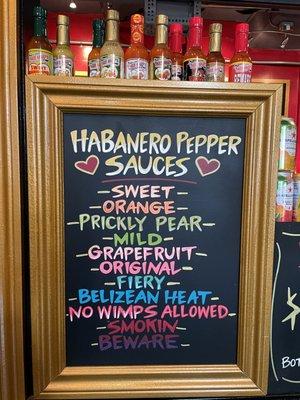 HABANERO PEPPER
SAUCES
SWEET
ORANGE
PRICKLY PEAR
MILD
GRAPEFRUIT
ORIGINAL
FIERY
BELIZEAN HEAT
NO WIMPS ALLOWED
SMOKIN
BEWARE
BOT